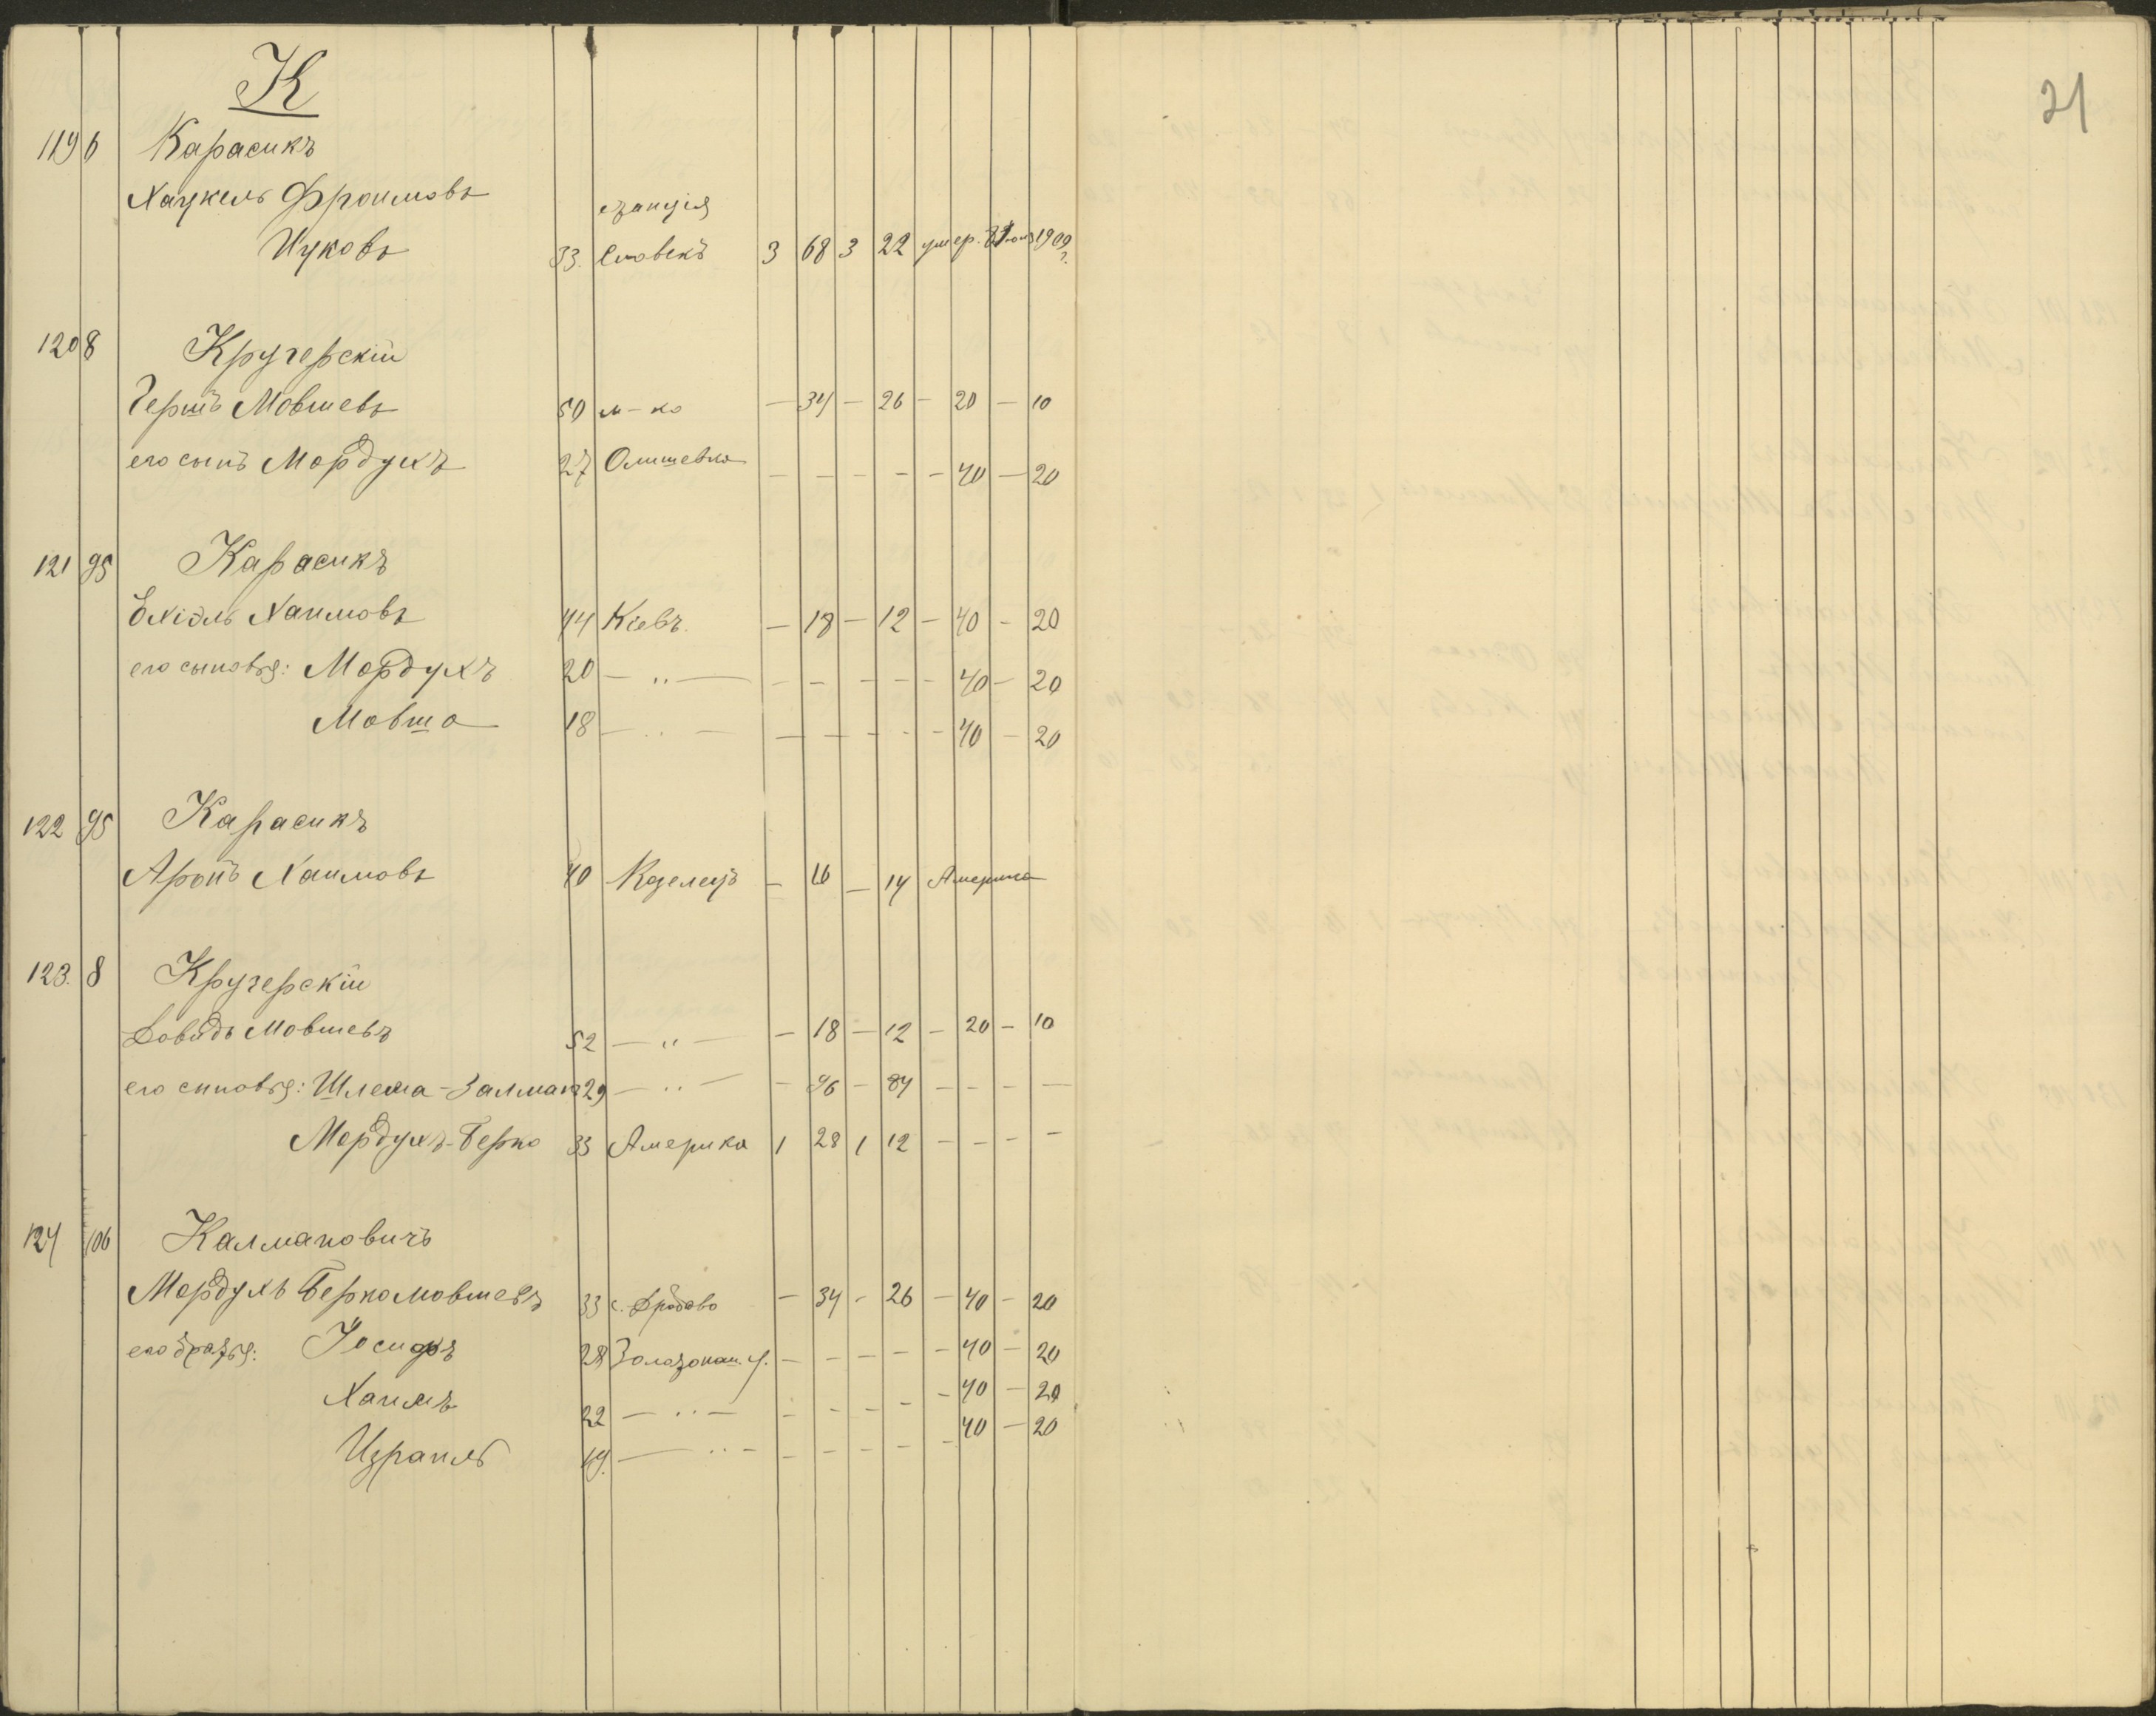 21
К
119 6 Карасикъ
Хацкель Фроимовъ станція
Ицковъ 33. 3 68 3 22 умер. 1909 г.
120 8 Кручерскій
Гершъ Мовшевъ 50 м-ко — 34 — 26 — 20 — 10
его сынъ Мордухъ 27 Олишевка — — — — — 40 — 20
121 95 Карасикъ
Ехіэль Хаимовъ 44 Кіевъ. — 18 — 12 — 40 — 20
его сыновья: Мордухъ 20 — " — — — — — — 40 — 20
Мовша 18 — " — — — — — — 40 — 20
122 95 Карасикъ
Аронъ Хаимовъ 40 Козелецъ — 16 — 14 Америка
123. 8 Кручерскій
Довидъ Мовшевъ 52 — " — — 18 — 12 — 20 — 10
его сыновья: Шлема-Залманъ 29 — " — — 96 — 84 — — — —
Мордухъ-Берко 33 Америка 1 28 1 12 — — — —
124 106 Калмановичъ
Мордухъ Беркомовшевъ 33 с. — 34 — 26 — 40 — 20
его братья: Іосифъ 28 Золотонош. у. — — — — — 40 — 20
Хаимъ 22 — " — — — — — — 40 — 20
Израиль 19. — " — — — — — — 40 — 20